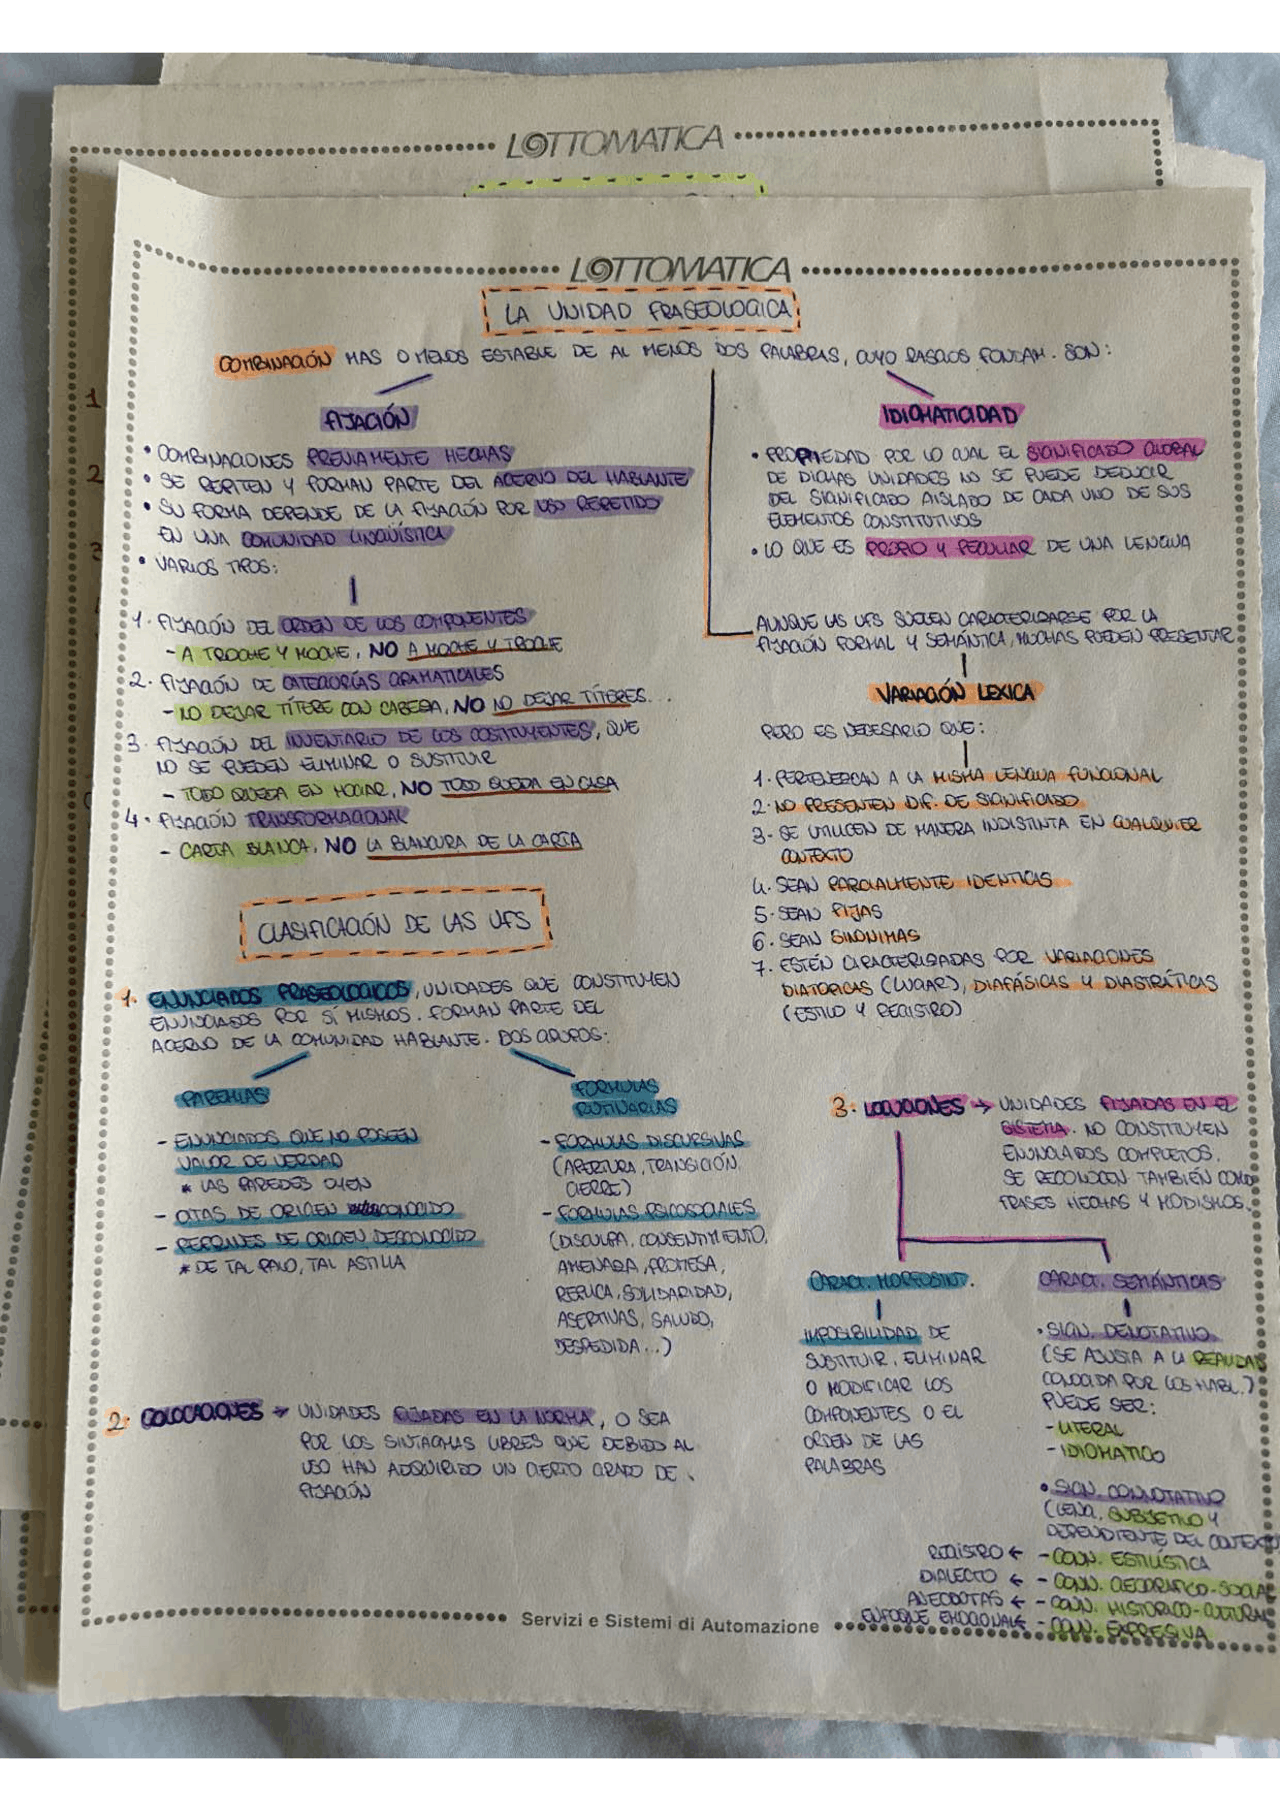 LOTTOMATICA
LOTTOMATICA
LA UNIDAD FRASEOLOGICA
COMBINACIÓN MAS O MENOS ESTABLE DE AL MENOS DOS PALABRAS, CUYO RASGOS FONDAM. SON:
FIJACIÓN
• COMBINACIONES PREVIAMENTE HECHAS
• SE REPITEN Y FORMAN PARTE DEL ACERVO DEL HABLANTE
• SU FORMA DEPENDE DE LA FIJACIÓN POR USO REPETIDO
EN UNA COMUNIDAD LINGUÍSTICA
• VARIOS TIPOS:
1. FIJACIÓN DEL ORDEN DE LOS COMPONENTES
- A TROCHE Y MOCHE, NO A MOCHE Y TROCHE
2. FIJACIÓN DE CATEGORÍAS GRAMATICALES
- NO DEJAR TÍTERE CON CABEZA, NO NO DEJAR TÍTERES...
3. FIJACIÓN DEL INVENTARIO DE LOS COSTITUYENTES, QUE
NO SE PUEDEN ELIMINAR O SUSTITUIR
- TODO QUEDA EN HOGAR, NO TODO QUEDA EN CASA
4. FIJACIÓN TRANSFORMACIONAL
- CARTA BLANCA, NO LA BLANCURA DE LA CARTA
IDIOMATICIDAD
• PROPIEDAD POR LO CUAL EL SIGNIFICADO GLOBAL
DE DICHAS UNIDADES NO SE PUEDE DEDUCIR
DEL SIGNIFICADO AISLADO DE CADA UNO DE SUS
ELEMENTOS CONSTITUTIVOS
• LO QUE ES PROPIO Y PECULIAR DE UNA LENGUA
AUNQUE LAS UFS SUELEN CARACTERIZARSE POR LA
FIJACIÓN FORMAL Y SEMÁNTICA, MUCHAS PUEDEN PRESENTAR
VARIACIÓN LEXICA
PERO ES NECESARIO QUE:
1. PERTENEZCAN A LA MISMA LENGUA FUNCIONAL
2. NO PRESENTEN DIF. DE SIGNIFICADO
3. SE UTILICEN DE MANERA INDISTINTA EN CUALQUIER
CONTEXTO
4. SEAN PARCIALMENTE IDENTICAS
5. SEAN FIJAS
6. SEAN SINONIMAS
7. ESTÉN CARACTERIZADAS POR VARIACIONES
DIATOPICAS (LUGAR), DIAFÁSICAS Y DIASTRÁTICAS
(ESTILO Y REGISTRO)
CLASIFICACIÓN DE LAS UFS
1. ENUNCIADOS FRASEOLOGICOS, UNIDADES QUE CONSTITUYEN
ENUNCIADOS POR SÍ MISMOS. FORMAN PARTE DEL
ACERVO DE LA COMUNIDAD HABLANTE. DOS GRUPOS:
PAREMIAS
- ENUNCIADOS QUE NO POSEEN
VALOR DE VERDAD
* LAS PAREDES OYEN
- CITAS DE ORIGEN CONOCIDO
- REFRANES DE ORIGEN DESCONOCIDO
* DE TAL PALO, TAL ASTILLA
FORMULAS
RUTINARIAS
- FORMULAS DISCURSIVAS
(APERTURA, TRANSICIÓN,
CIERRE)
- FORMULAS PSICOSOCIALES
(DISCULPA, CONSENTIMIENTO,
AMENAZA, PROMESA,
REPLICA, SOLIDARIDAD,
ASERTIVAS, SALUDO,
DESPEDIDA...)
2. COLOCACIONES → UNIDADES FIJADAS EN LA NORMA, O SEA
POR LOS SINTAGMAS LIBRES QUE DEBIDO AL
USO HAN ADQUIRIDO UN CIERTO GRADO DE
FIJACIÓN
3. LOCUCIONES → UNIDADES FIJADAS EN EL
SISTEMA. NO CONSTITUYEN
ENUNCIADOS COMPLETOS.
SE RECONOCEN TAMBIÉN COMO
FRASES HECHAS Y MODISMOS.
CARACT. MORFOSINT.
IMPOSIBILIDAD DE
SUSTITUIR, ELIMINAR
O MODIFICAR LOS
COMPONENTES O EL
ORDEN DE LAS
PALABRAS
CARACT. SEMÁNTICAS
• SIGN. DENOTATIVO
(SE AJUSTA A LA REALIDAD
CONOCIDA POR LOS HABL.)
PUEDE SER:
- LITERAL
- IDIOMATICO
• SIGN. CONNOTATIVO
(LENG. SUBJETIVO Y
DEPENDIENTE DEL CONTEXTO
REGISTRO ← - CONN. ESTILISTICA
DIALECTO ← - CONN. GEOGRAFICO-SOCIAL
ANECDOTAS ← - CONN. HISTORICO-CULTURAL
ENFOQUE EMOCIONAL ← - CONN. EXPRESIVA
Servizi e Sistemi di Automazione
1
2
3